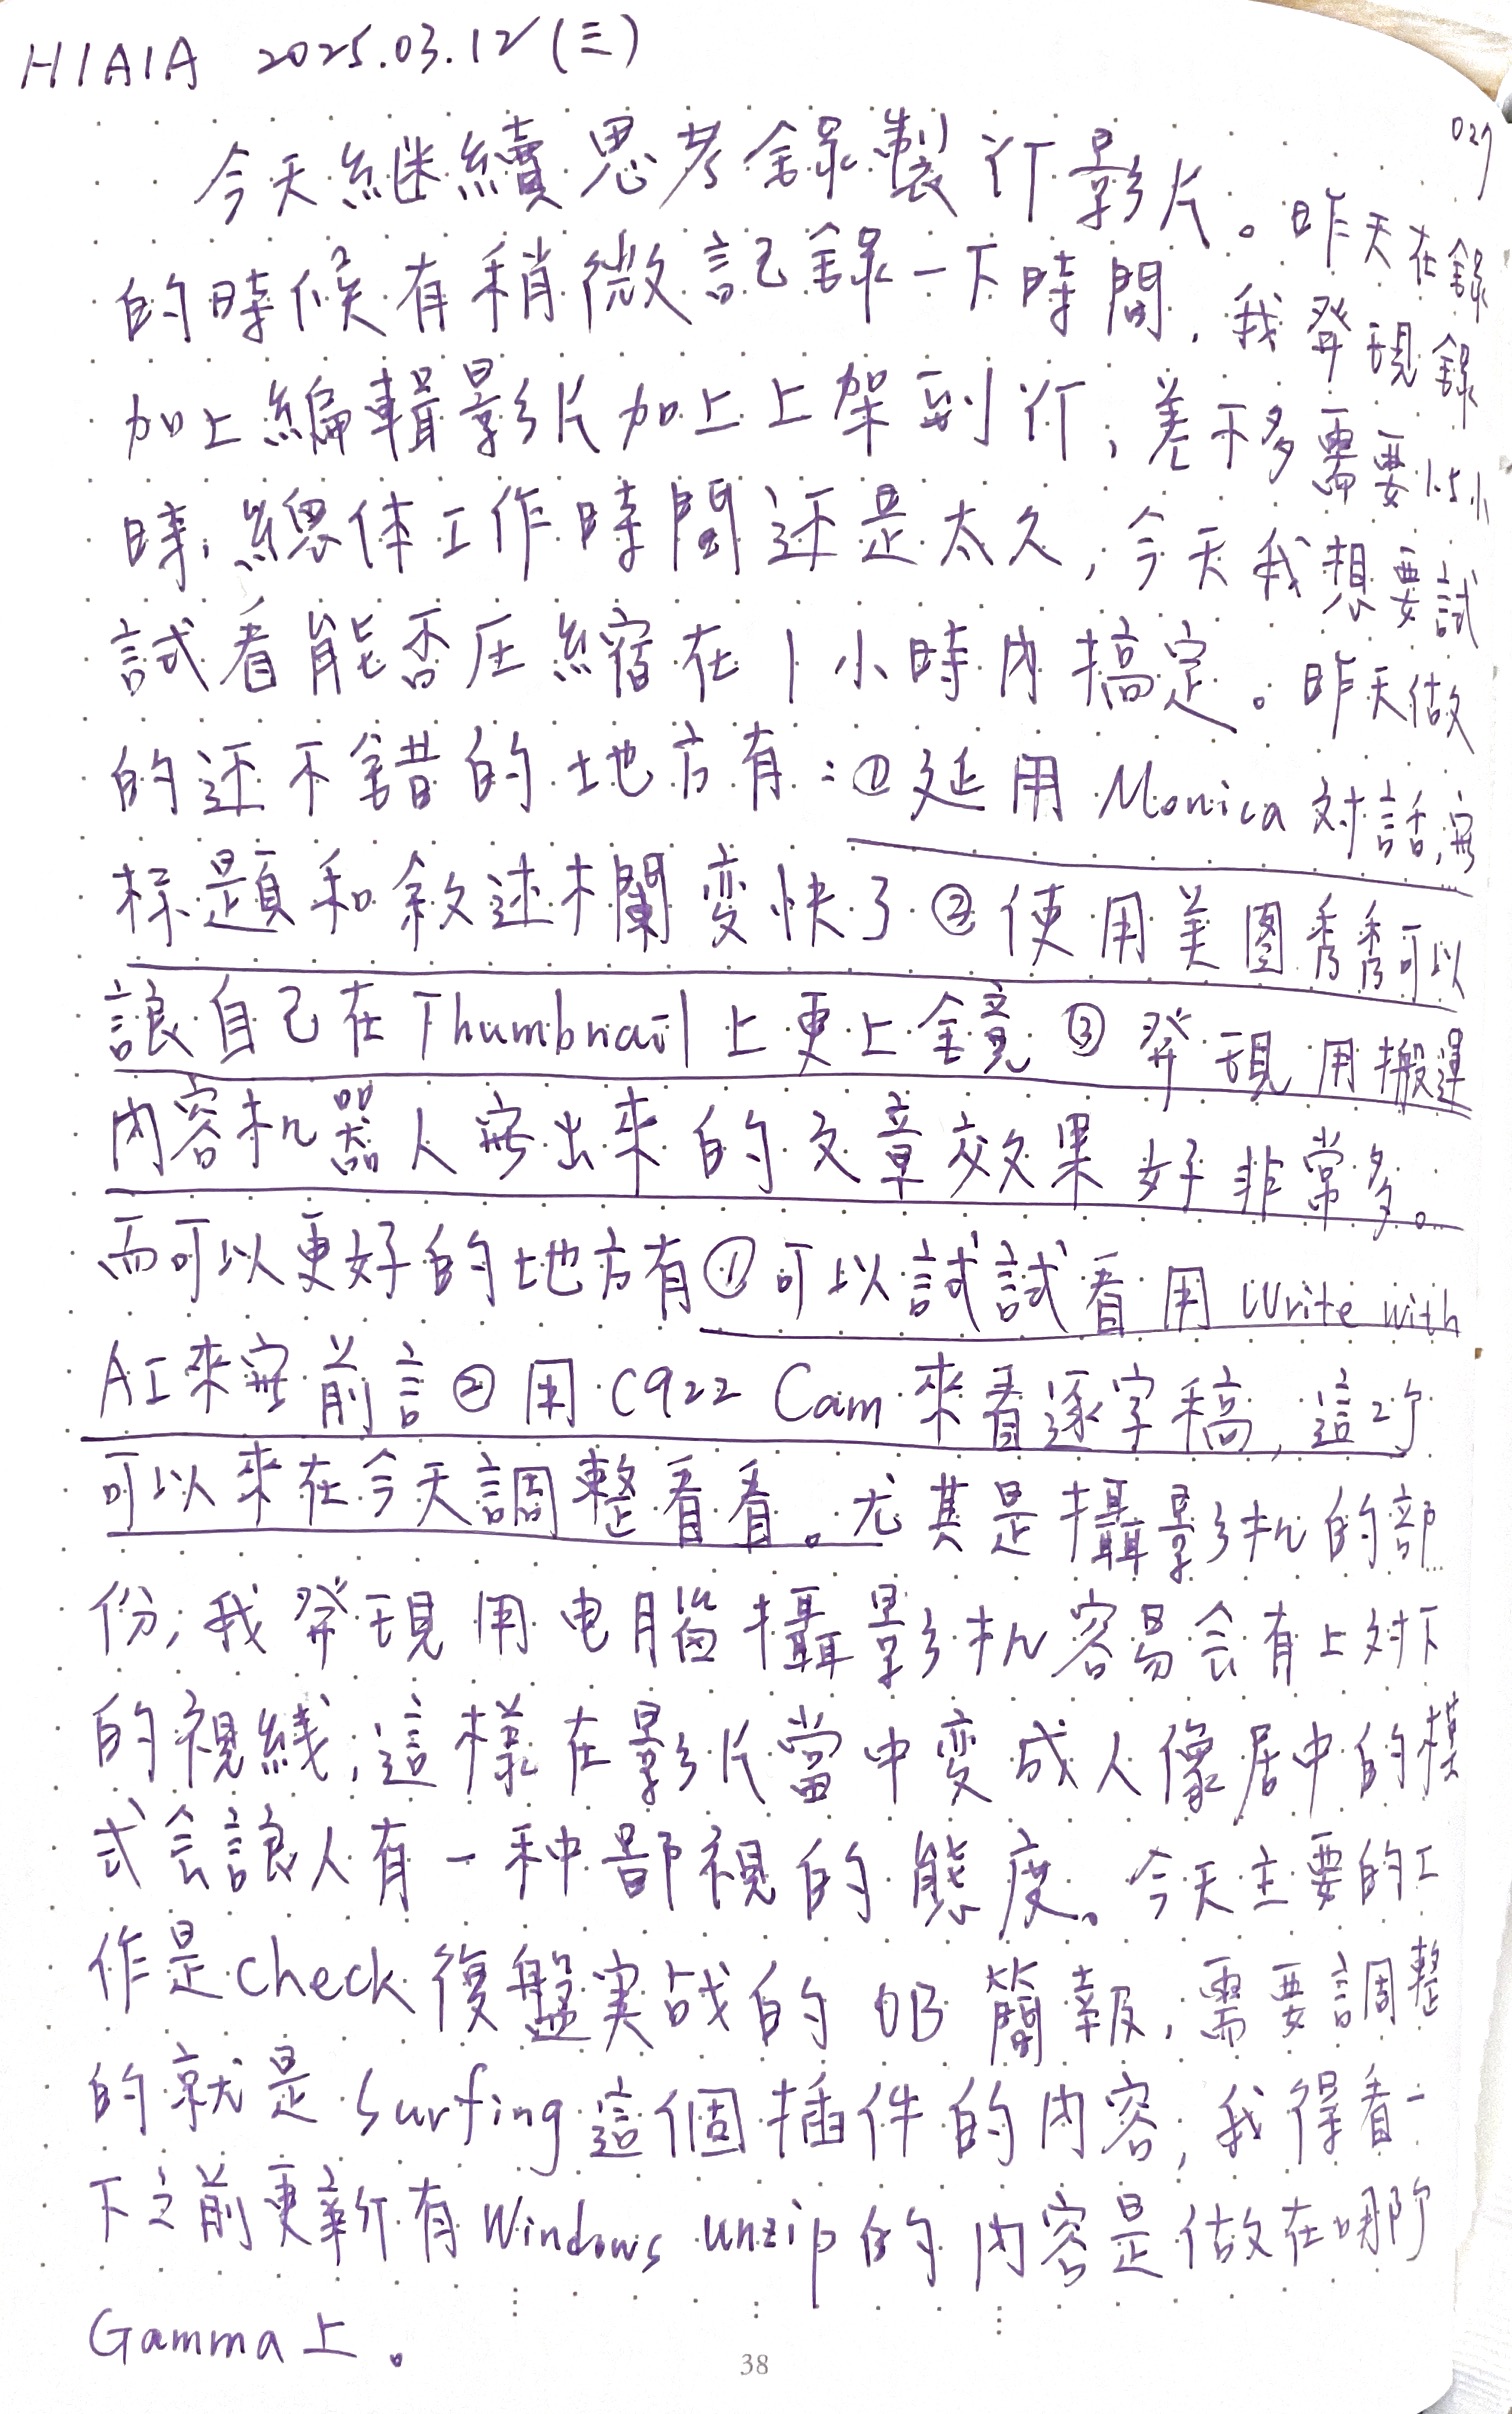 H1A1A 2025.03.12(三)
027
今天継續思考錄製YT影片。昨天在錄
的時候有稍微記錄一下時間,我発現錄
加上編輯影片加上上架到YT,差不多需要1.5小
時,總体工作時間还是太久,今天我想要試
試看能否圧縮在1小時內搞定。昨天做
的还不錯的地方有:①延用Monica対話,寫
标題和敘述欄变快了②使用美图秀秀可以
讓自己在Thumbnail上更上鏡③発現用搬運
內容机器人寫出來的文章效果好非常多。
而可以更好的地方有①可以試試看用Write with
AI來寫前言②用C922 Cam來看逐字稿,這2个
可以來在今天調整看看。尤其是攝影机的部
份,我発現用电腦攝影机容易会有上対下
的視綫,這樣在影片當中变成人像居中的模
式会讓人有一种鄙視的態度。今天主要的工
作是check復盤実战的OB簡報,需要調整
的就是Surfing這個插件的內容,我得看一
下之前更新有Windows unzip的內容是做在哪个
Gamma上。
38